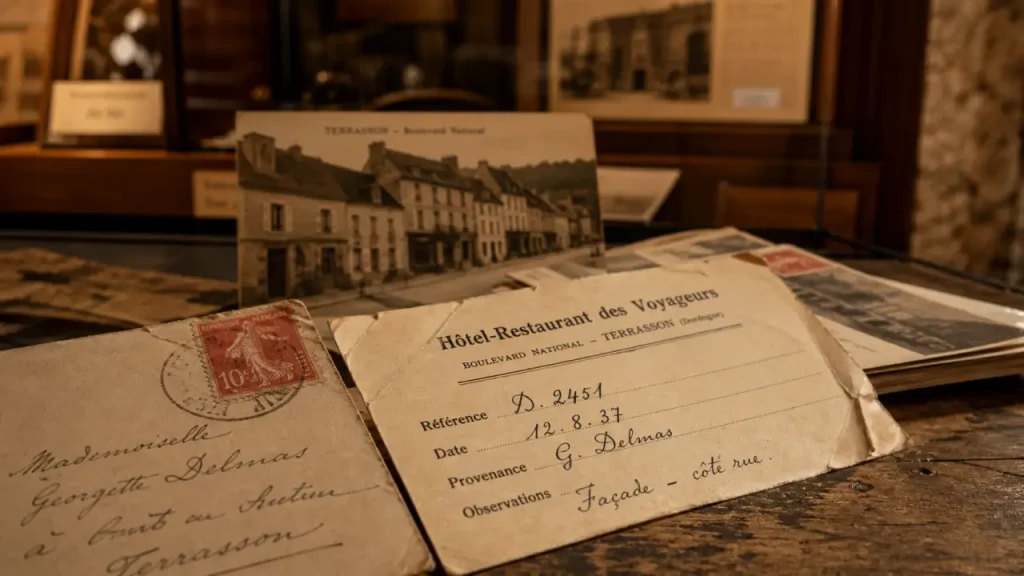 TERRASSON – Boulevard National
Hôtel-Restaurant des Voyageurs
BOULEVARD NATIONAL – TERRASSON (Dordogne)
Référence D. 2451
Date 12. 8. 37
Provenance G. Delmas
Observations Façade – côté rue.
10
Mademoiselle
Georgette Delmas
à
Terrasson